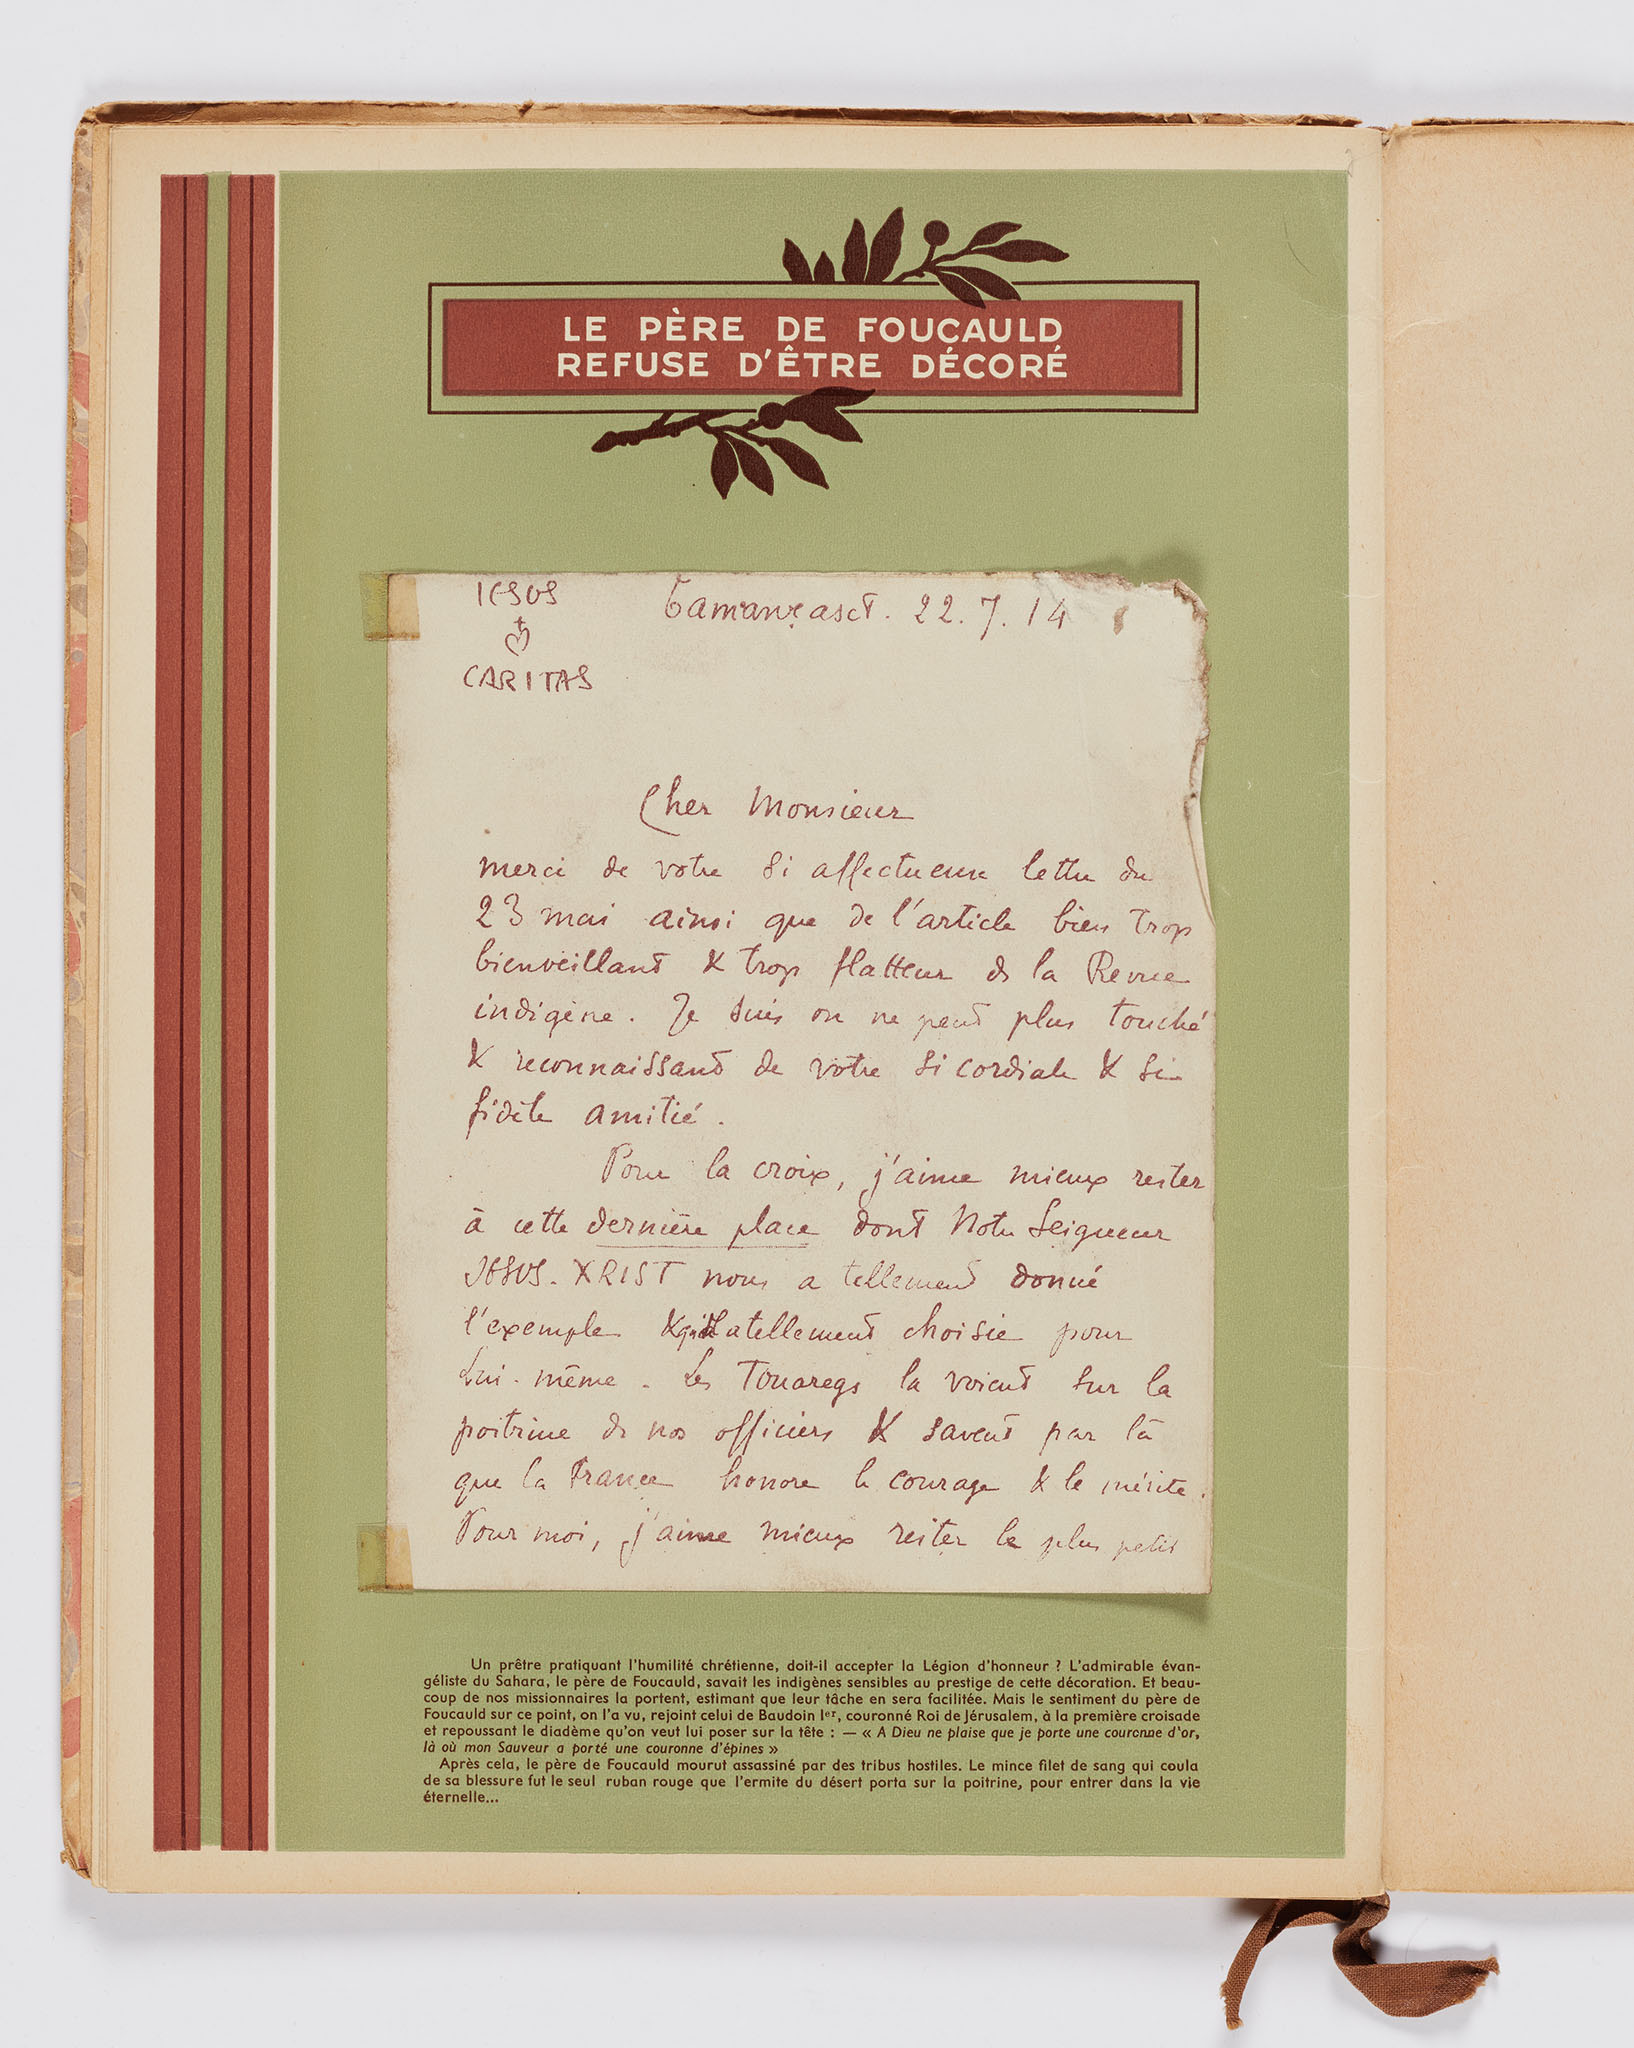 LE PÈRE DE FOUCAULD
REFUSE D'ÊTRE DÉCORÉ
IESUS
CARITAS
Tamanrasset. 22. 7. 14
Cher Monsieur
merci de votre si affectueuse lettre du
23 mai ainsi que de l'article bien trop
bienveillant & trop flatteur ds la Revue
indigène. Je suis on ne peut plus touché
& reconnaissant de votre si cordiale & si
fidèle amitié.
Pour la croix, j'aime mieux rester
à cette dernière place dont Notre Seigneur
JESUS. XRIST nous a tellement donné
l'exemple & qu'il a tellement choisie pour
Lui-même. Les Touaregs la voient sur la
poitrine de nos officiers & savent par là
que la France honore le courage & le mérite.
Pour moi, j'aime mieux rester le plus petit
Un prêtre pratiquant l'humilité chrétienne, doit-il accepter la Légion d'honneur ? L'admirable évan-
géliste du Sahara, le père de Foucauld, savait les indigènes sensibles au prestige de cette décoration. Et beau-
coup de nos missionnaires la portent, estimant que leur tâche en sera facilitée. Mais le sentiment du père de
Foucauld sur ce point, on l'a vu, rejoint celui de Baudoin Ier, couronné Roi de Jérusalem, à la première croisade
et repoussant le diadème qu'on veut lui poser sur la tête : — « A Dieu ne plaise que je porte une couronne d'or,
là où mon Sauveur a porté une couronne d'épines »
Après cela, le père de Foucauld mourut assassiné par des tribus hostiles. Le mince filet de sang qui coula
de sa blessure fut le seul ruban rouge que l'ermite du désert porta sur la poitrine, pour entrer dans la vie
éternelle...